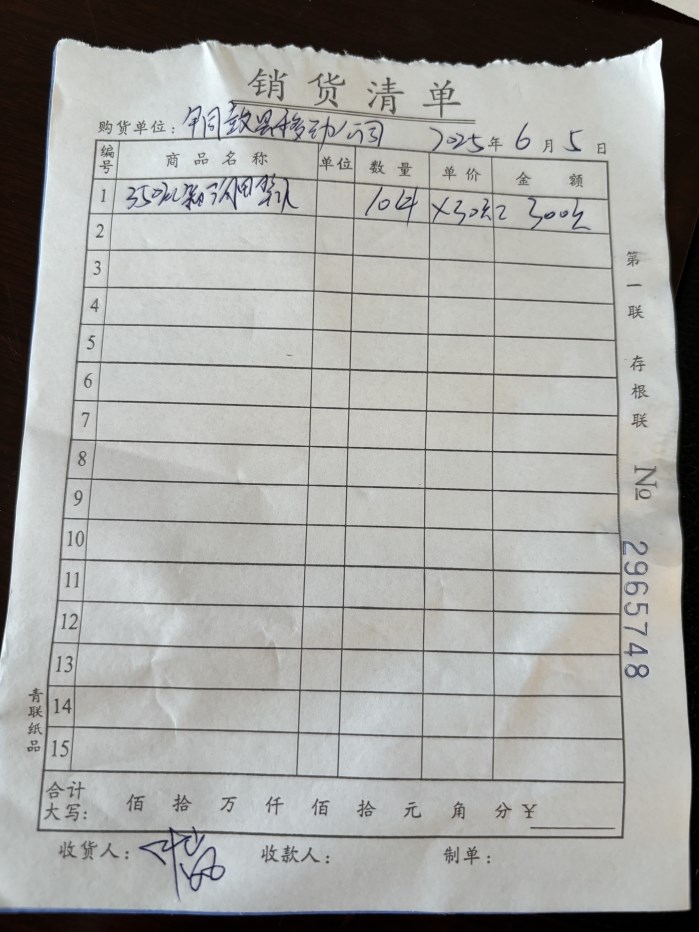 销货清单
购货单位: 县移动公司 2025年6月5日
编号 商品名称 单位 数量 单价 金额
1 10件 X30元= 300元
2
3
4
5
6
7
8
9
10
11
12
13
14
15
合计大写: 佰 拾 万 仟 佰 拾 元 角 分 ¥
收货人: 收款人: 制单:
第一联 存根联
№ 2965748
青联纸品